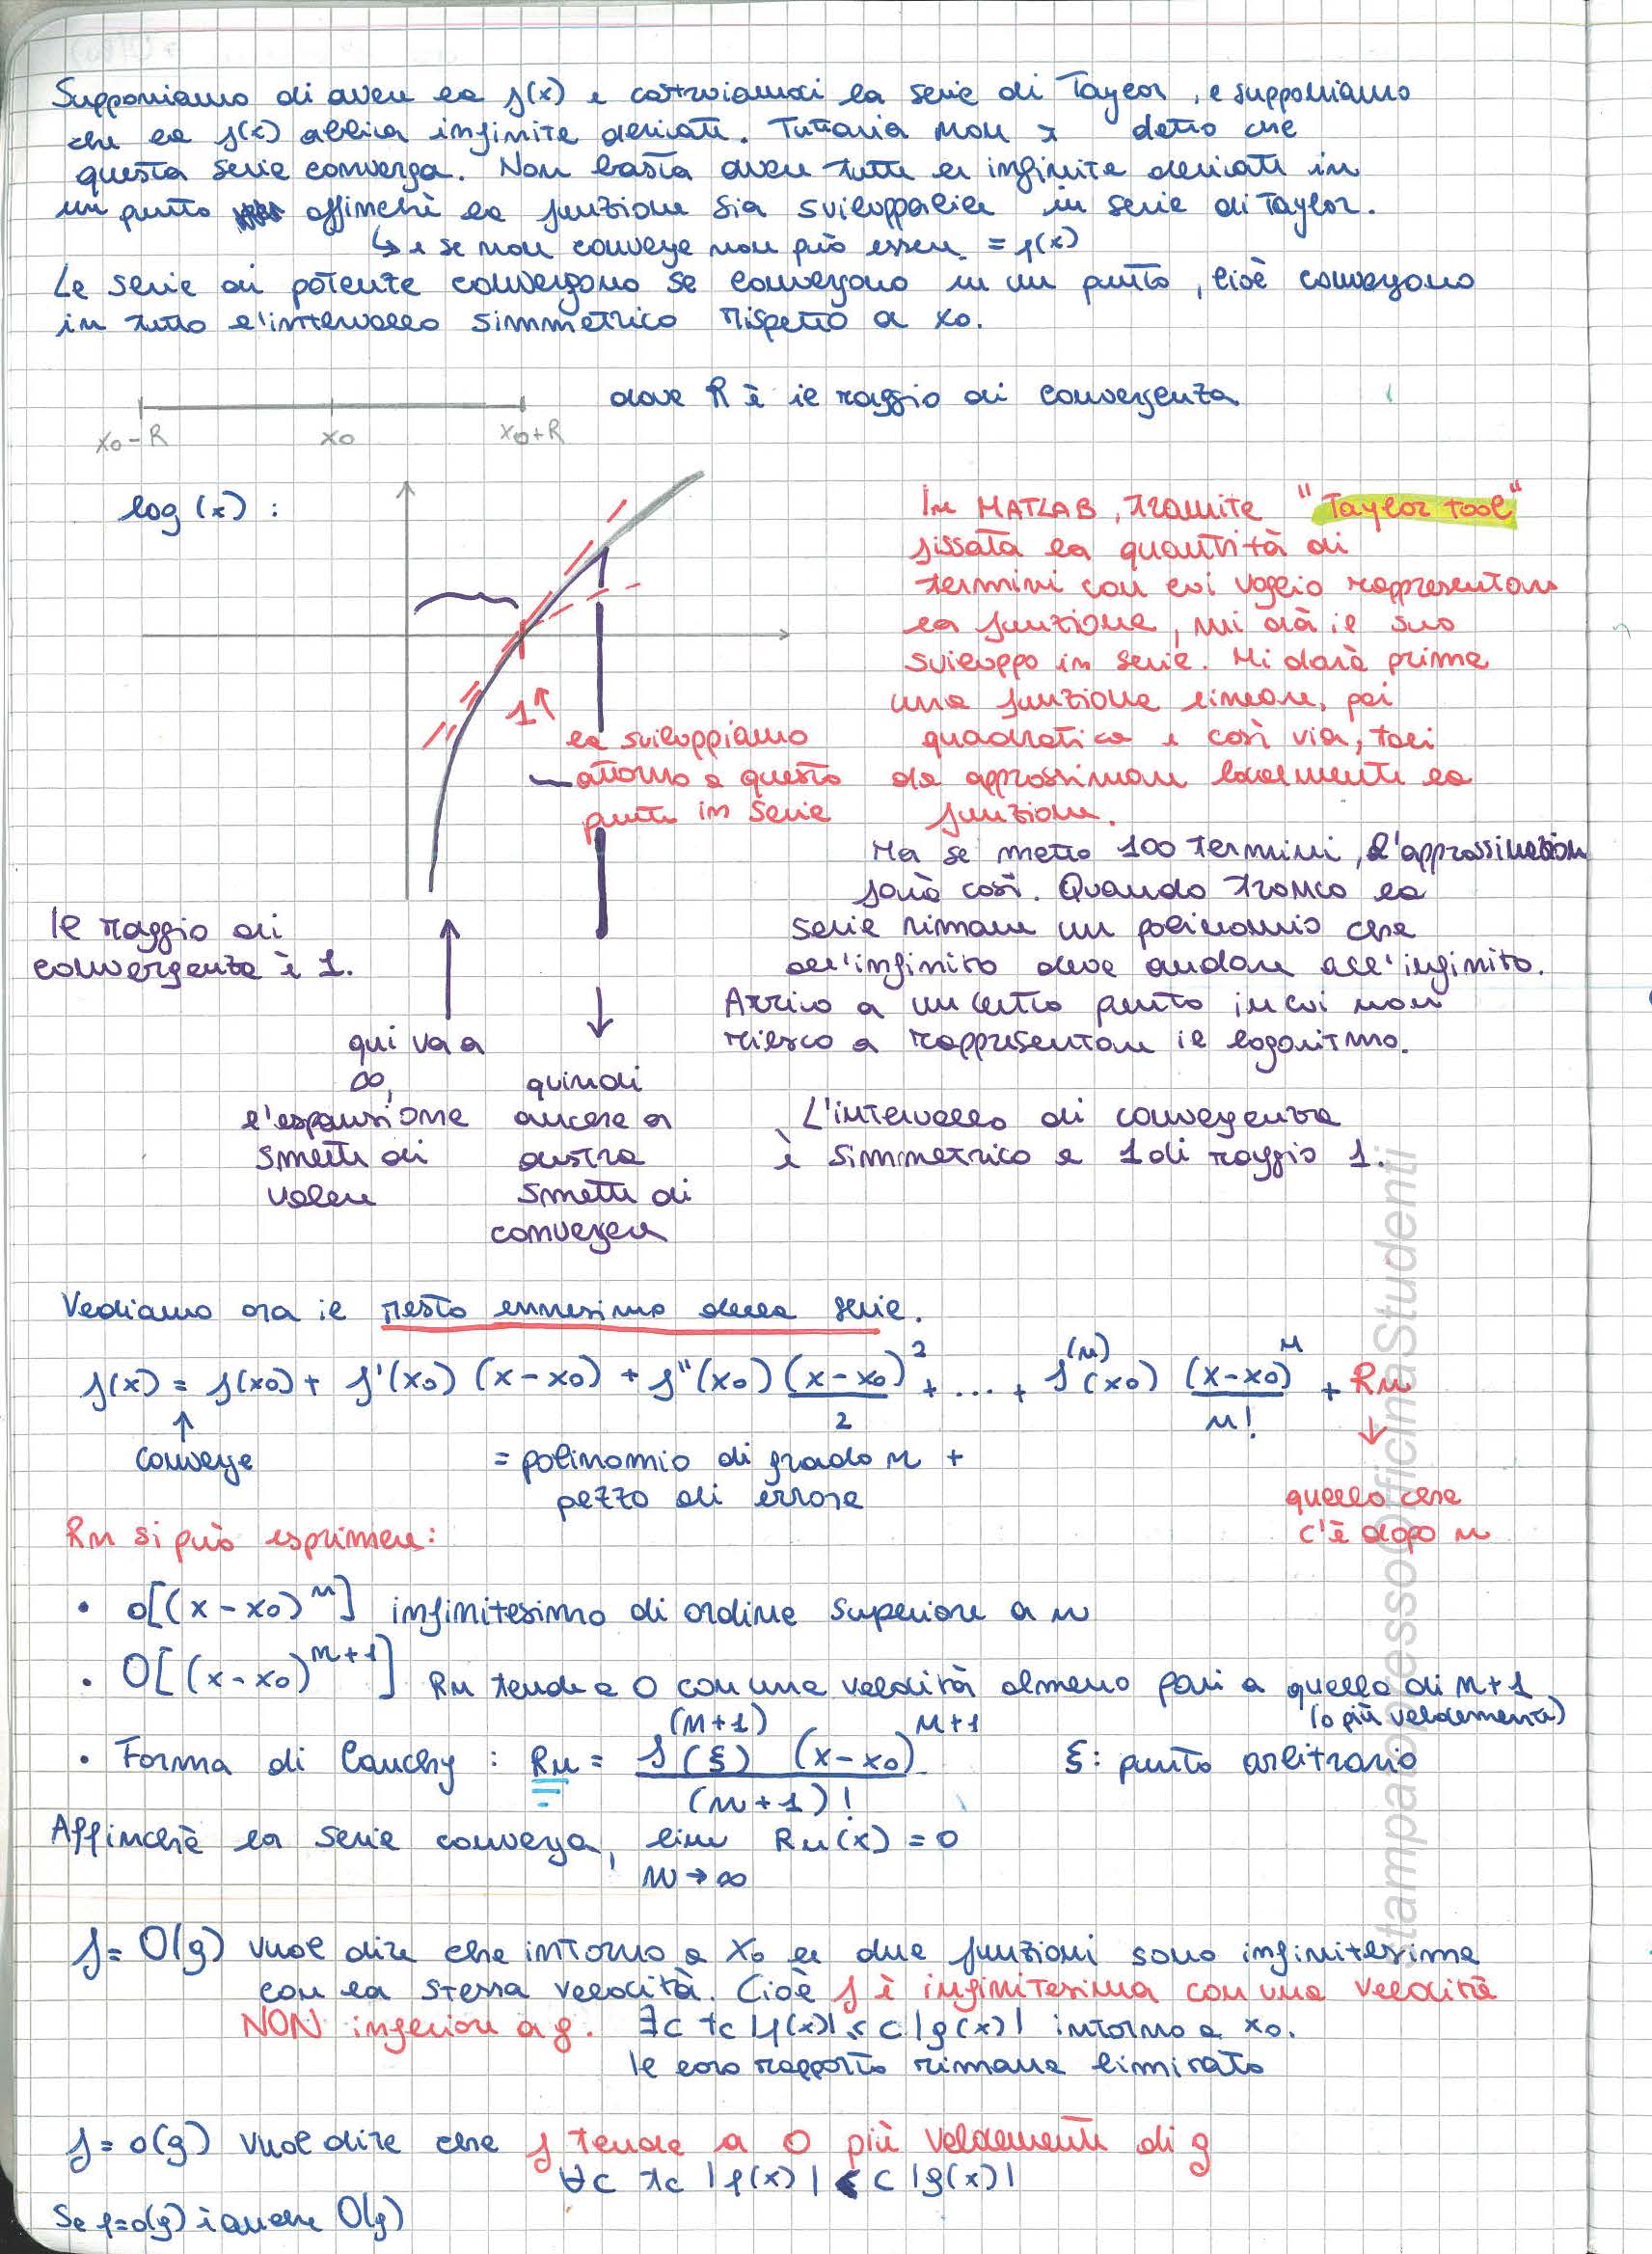 Supponiamo di avere la f(x) e costruiamoci la serie di Taylor, e supponiamo
che la f(x) abbia infinite derivate. Tuttavia non è detto che
questa serie converga. Non basta avere tutte le infinite derivate in
un punto affinchè la funzione sia sviluppabile in serie di Taylor.
↳ e se non converge non può essere = f(x)
Le serie di potenze convergono se convergono in un punto, cioè convergono
in tutto l'intervallo simmetrico rispetto a x0.
dove R è il raggio di convergenza
x0-R x0 x0+R
log(x):
In MATLAB, tramite "Taylor tool"
fissata la quantità di
termini con cui voglio rappresentare
la funzione, mi dà il suo
sviluppo in serie. Mi darà prima
una funzione lineare, poi
quadratica e così via, tali
da approssimare localmente la
funzione.
1
la sviluppiamo
attorno a questo
punto in serie
Ma se metto 100 termini, l'approssimazione
sarà così. Quando tronco la
serie rimane un polinomio che
all'infinito deve andare all'infinito.
Arrivo a un certo punto in cui non
riesco a rappresentare il logaritmo.
Il raggio di
convergenza è 1.
qui va a
∞,
l'espansione
smette di
valere
quindi
anche a
destra
smette di
convergere
L'intervallo di convergenza
è simmetrico a 1 di raggio 1.
Vediamo ora il resto ennesimo della serie.
f(x) = f(x0) + f'(x0) (x-x0) + f''(x0) (x-x0)²/2 + ... + f^(n)(x0) (x-x0)^n/n! + Rn
↑ converge
= polinomio di grado n +
pezzo di errore
↓ quello che
c'è dopo n
Rn si può esprimere:
• o[(x-x0)^n] infinitesimo di ordine superiore a n
• O[(x-x0)^n+1] Rn tende a 0 con una velocità almeno pari a quella di n+1
(o più velocemente)
• Forma di Cauchy: Rn = f^(n+1)(ξ) (x-x0)^n+1/(n+1)! ξ: punto arbitrario
Affinchè la serie converga, lim n→∞ Rn(x) = 0
f = O(g) vuol dire che intorno a x0 le due funzioni sono infinitesime
con la stessa velocità. Cioè f è infinitesima con una velocità
NON inferiore a g. ∃c tc |f(x)| ≤ c |g(x)| intorno a x0.
Il loro rapporto rimane limitato
f = o(g) vuol dire che f tende a 0 più velocemente di g
∀c tc |f(x)| < c |g(x)|
Se f=o(g) è anche O(g)
stampato presso OfficinaStudenti